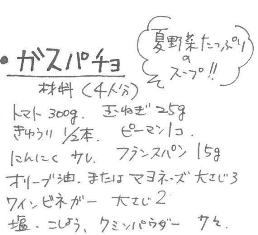 夏野菜たっぷり
の
スープ!!
・ガスパチョ
材料(4人分)
トマト 300g. 玉ねぎ 25g
きゅうり 1/2本. ピーマン1コ.
にんにく 少し. フランスパン 15g
オリーブ油. または マヨネーズ 大さじ3
ワインビネガー 大さじ2
塩・こしょう、クミンパウダー 少々